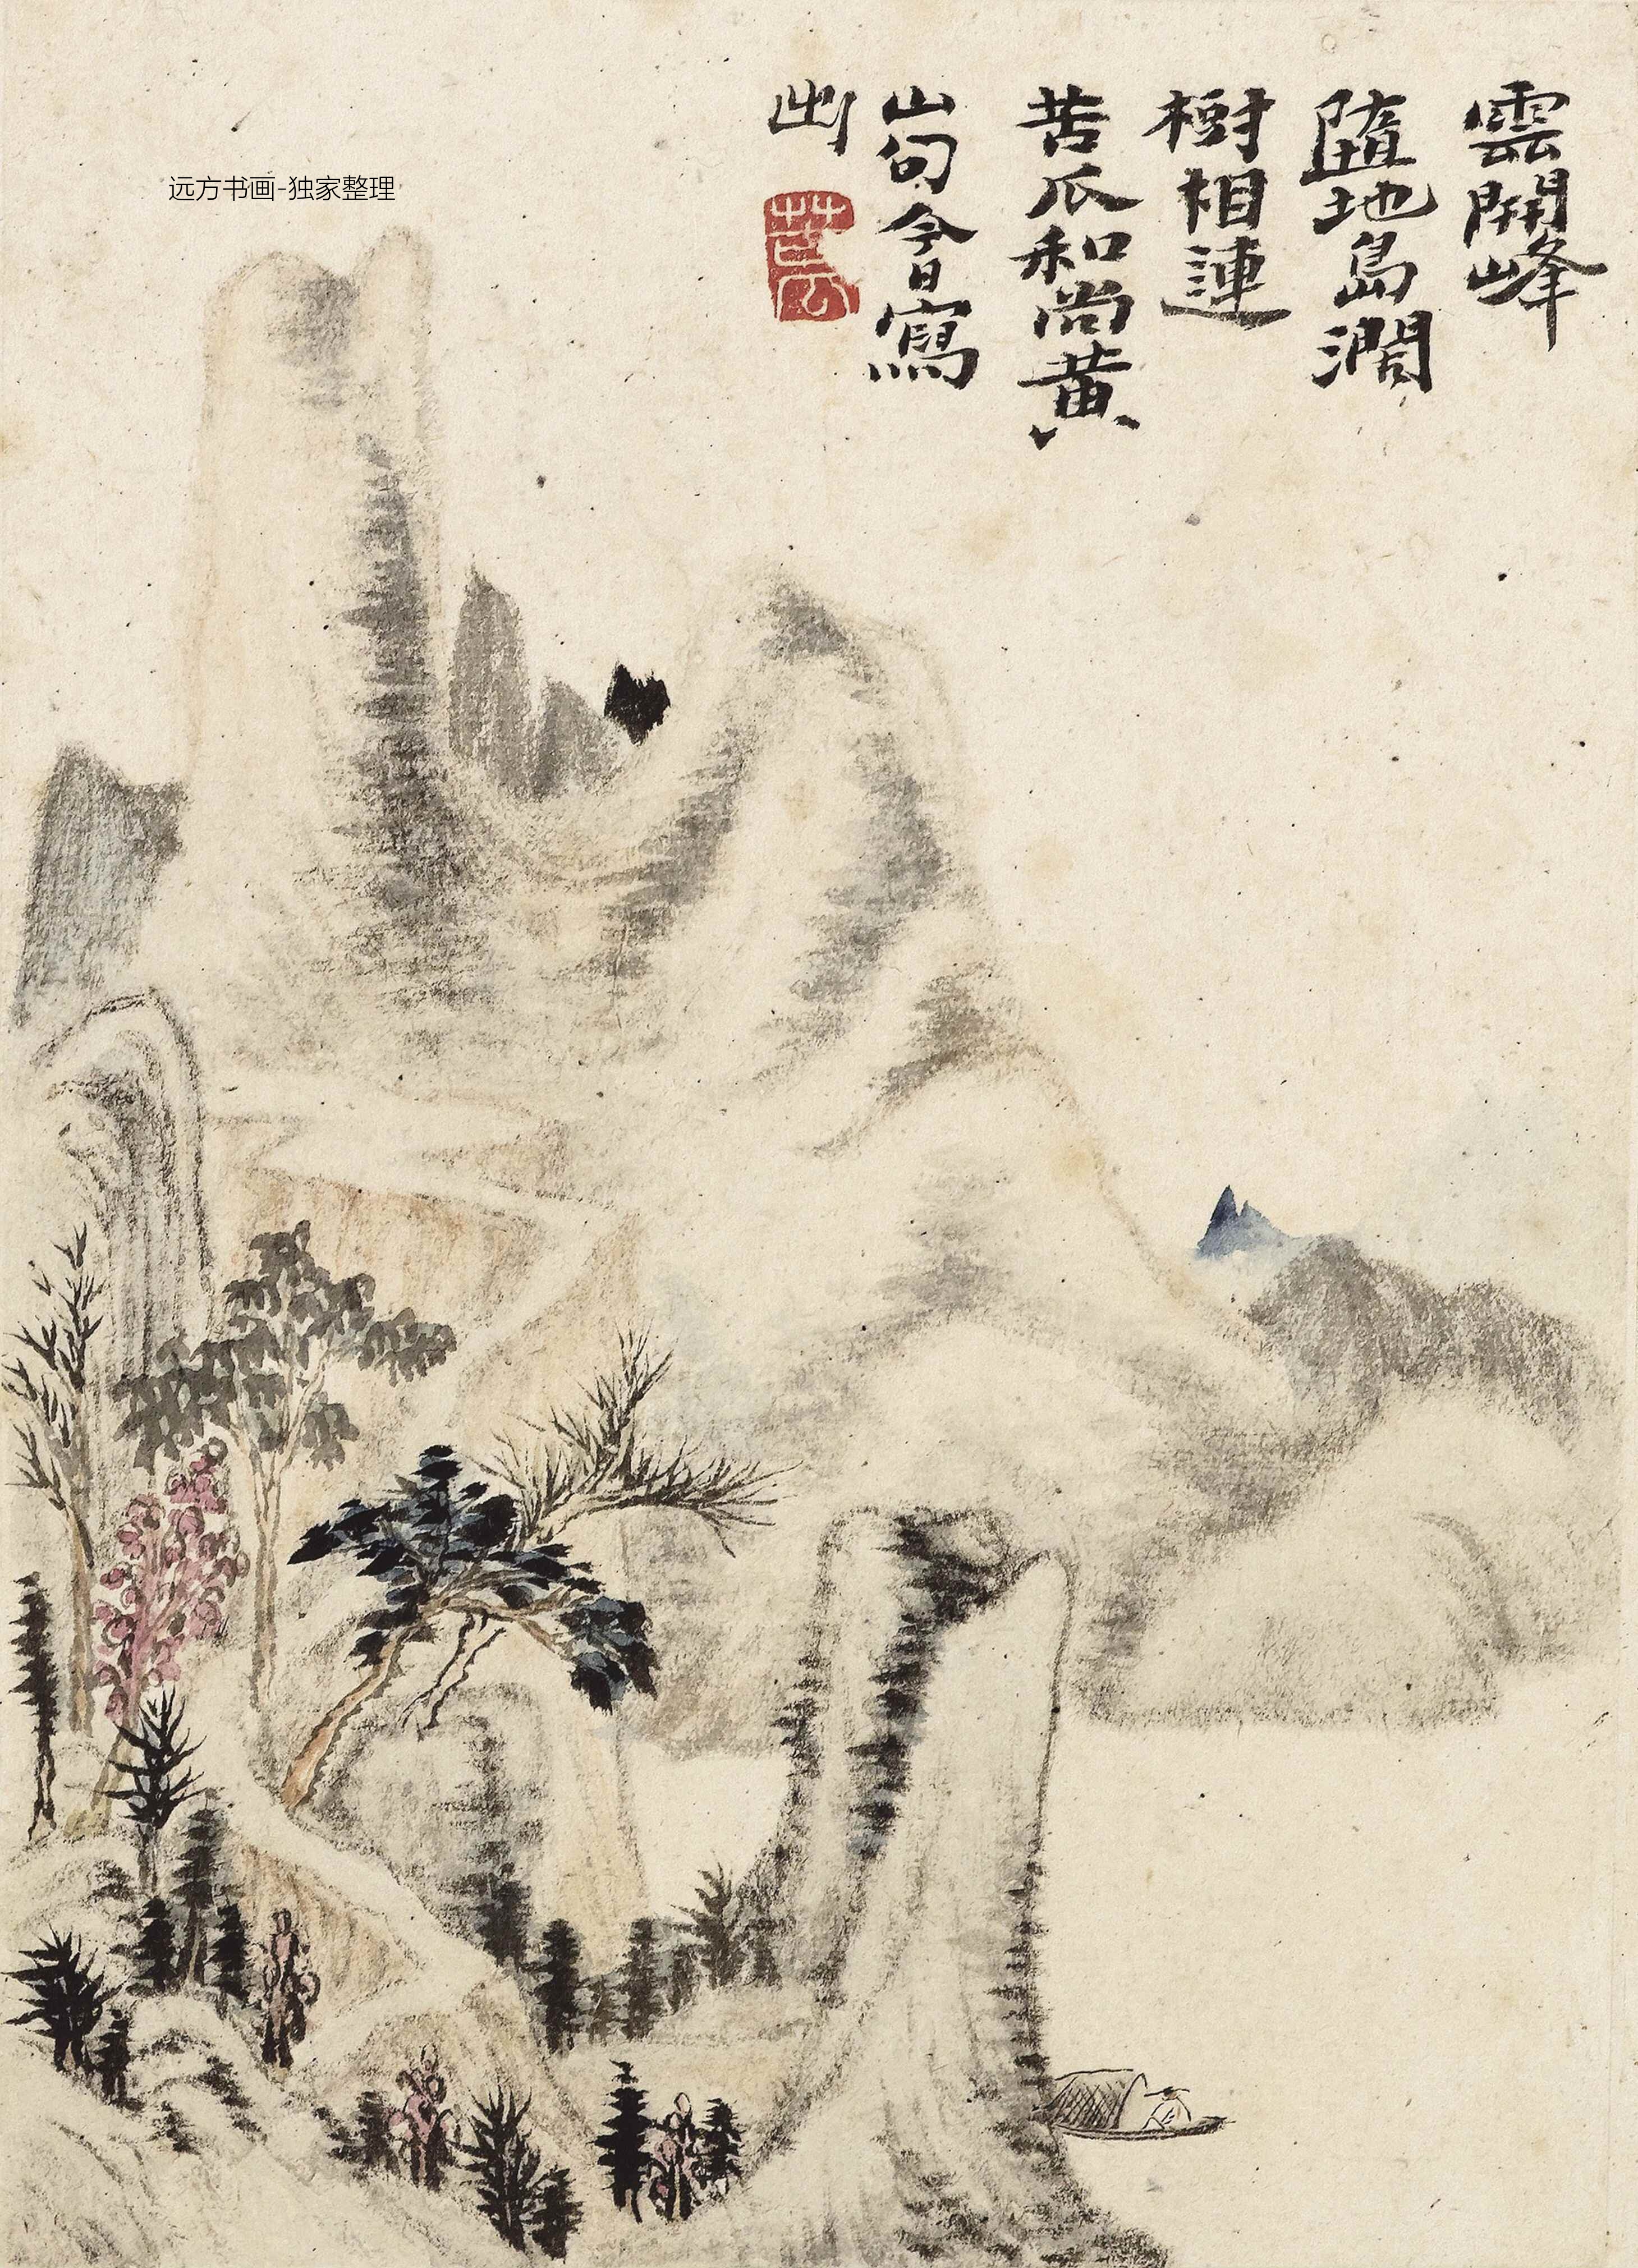 雲開峰
墮地島濶
樹相連
苦瓜和尚黃
山句今日寫
此
远方书画-独家整理